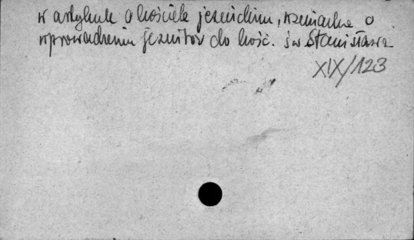 w artykule o kościele jezuickim, wzmianka o
wprowadzeniu jezuitów do kość. św Stanisława
XIX/123